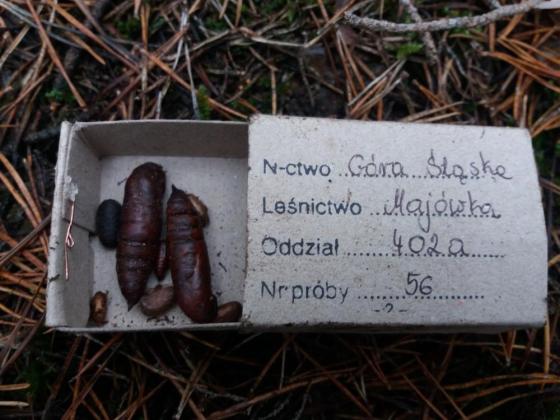 N-ctwo Góra Śląska
Leśnictwo Majówka
Oddział 402a
Nr próby 56
-2-